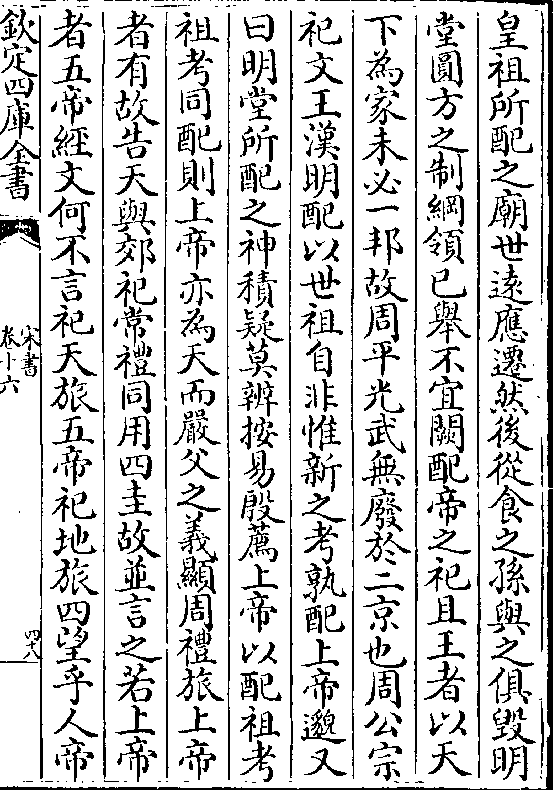 皇祖所配之廟世遠應遷然後從食之孫與之俱毀明
堂圓方之制綱領已舉不宜闕配帝之祀且王者以天
下為家未必一邦故周平光武無廢於二京也周公宗
祀文王漢明配以世祖自非惟新之考孰配上帝邈又
曰明堂所配之神積疑莫辨按易殷薦上帝以配祖考
祖考同配則上帝亦為天而嚴父之義顯周禮旅上帝
者有故告天與郊祀常禮同用四圭故並言之若上帝
者五帝經文何不言祀天旅五帝祀地旅四望乎人帝
欽定四庫全書
宋書
卷十六
四八